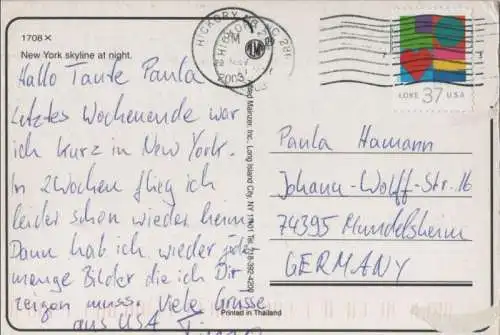 1708 X
New York skyline at night.
Hallo Tante Paula
letztes Wochenende war
ich kurz in New York.
In 2 Wochen flieg ich
leider schon wieder heim.
Dann hab ich wieder jede
menge Bilder die ich Dir
zeigen muss. Viele Grüsse
aus USA
HICKORY NC
2003
LOVE 37 USA
Paula Hamann
Johann-Wolff-Str. 16
74395 Mundelsheim
GERMANY
Manzer, Inc. Long Island City, NY 11101 Tel.
Printed in Thailand